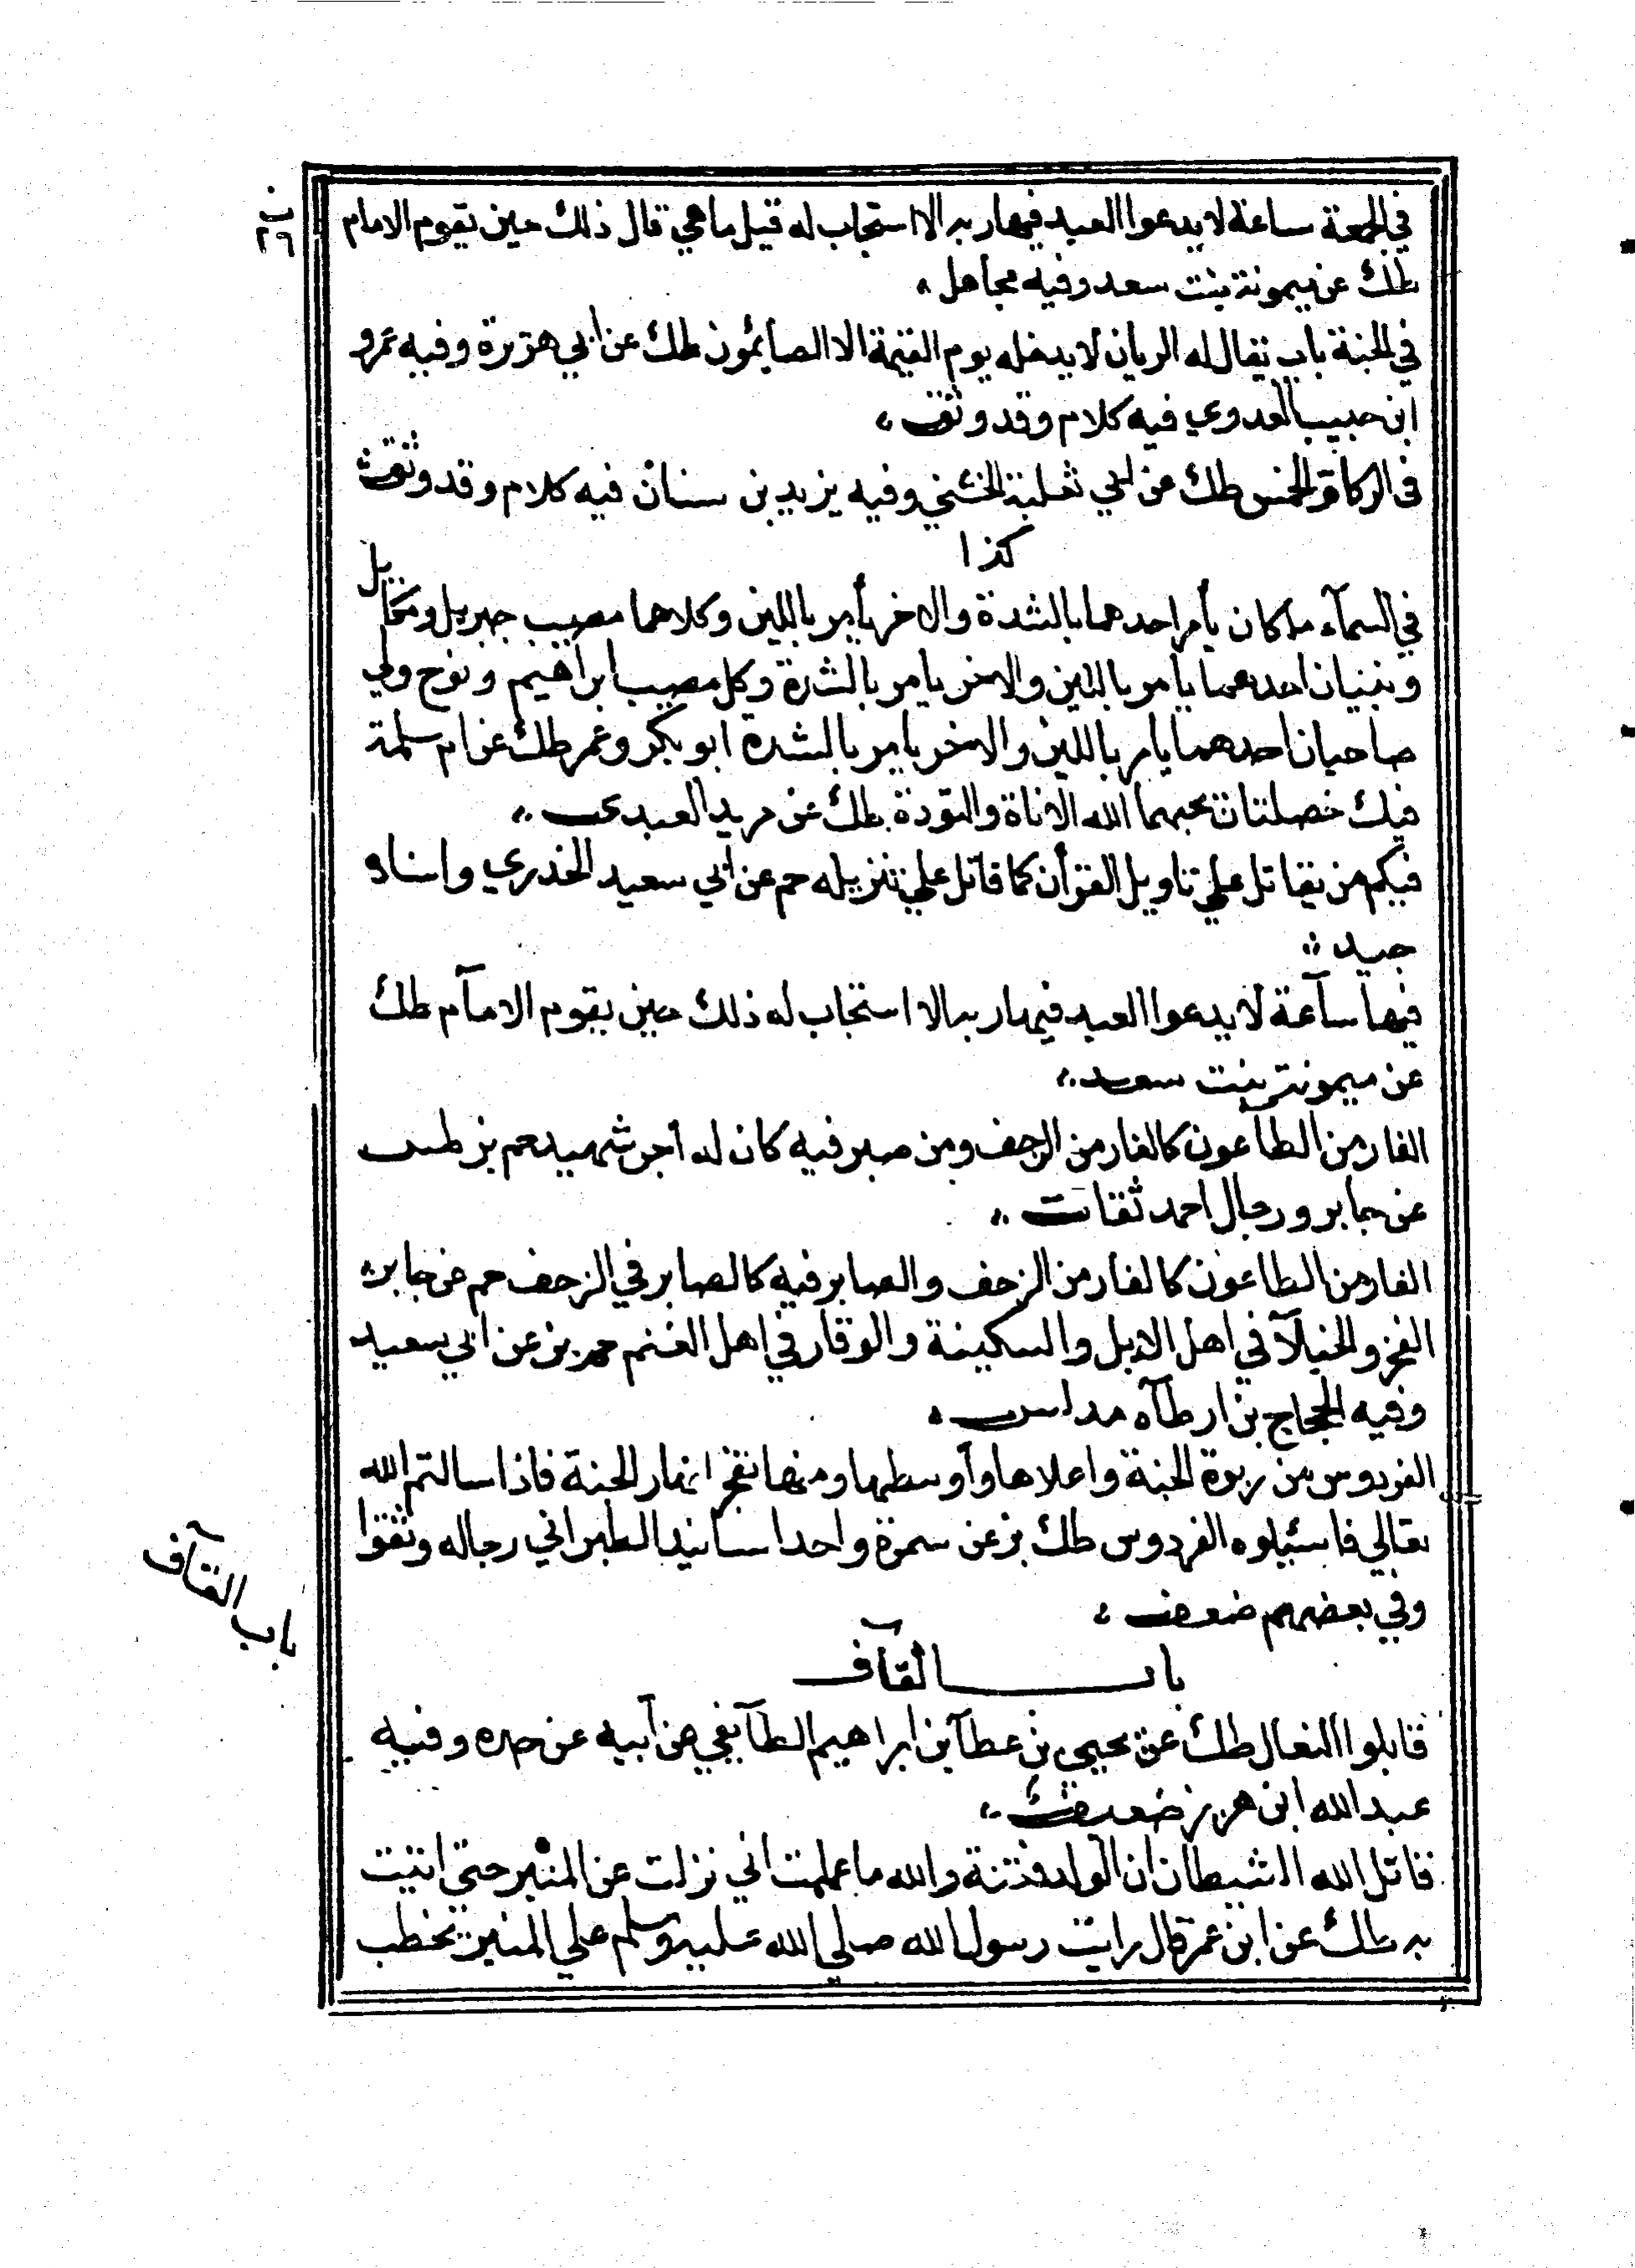 في الجمعة ساعة لا يدعوا العبد فيها ربه الا استجاب له قيل ما هي قال ذلك حين تقوم الامام
طك عن ميمونة بنت سعد وفيه مجاهل
في الجنة باب يقال له الريان لا يدخله يوم القيمة الا الصائمون طك عن ابي هريرة وفيه عمرو
ابن حبيب العدوي فيه كلام وقد وثق
في الركاز الخمس طك عن ابي ثعلبة الخشني وفيه يزيد بن سنان فيه كلام وقد وثق
كذا
في السمآء ملكان يأمر احدهما بالشدة والاخر يأمر باللين وكلاهما مصيب جبريل وميكائيل
ونبيان احدهما يامر باللين والاخر يامر بالشدة وكل مصيب ابراهيم ونوح ولي
صاحبان احدهما يامر باللين والاخر يامر بالشدة ابو بكر وعمر طك عن ام سلمة
فيك خصلتان يحبهما الله الاناة والتودة طك عن مزيد العبدي
فيكم من يقاتل علي تاويل القرأن كما قاتل علي تنزيله حم عن ابي سعيد الخدري واسناده
جيد
فيها سآعة لا يدعوا العبد فيها ربه الا استجاب له ذلك حين يقوم الامآم طك
عن ميمونة بنت سعد
الفار من الطآعون كالفار من الزحف ومن صبر فيه كان له أجر شهيد حم بز طس
عن جابر ورجال احمد ثقات
الفار من الطاعون كالفار من الزحف والصابر فيه كالصابر في الزحف حم عن جابر
الفخر والخيلآ في اهل الابل والسكينة والوقار في اهل الغنم حم بز عن ابي سعيد
وفيه الحجاج بن ارطآه مدلس
الفردوس من ربوة الجنة واعلاها وأوسطها ومنها تفجر انهار الجنة فاذا سالتم الله
تعالي فاسئلوه الفردوس طك بز عن سمرة واحد اسانيد الطبراني رجاله وثقوا
وفي بعضهم ضعف
باب القآف
باب القآف
قابلوا النعال طك عن يحيي بن عطآ بن ابراهيم الطآيفي عن أبيه عن جده وفيه
عبد الله ابن هرمز ضعيف
قاتل الله الشيطان ان الولد فتنة والله ما علمت اني نزلت عن المنبر حتي اتيت
به طك عن ابن عمر قال رايت رسول الله صلي الله عليه وسلم علي المنبر يخطب